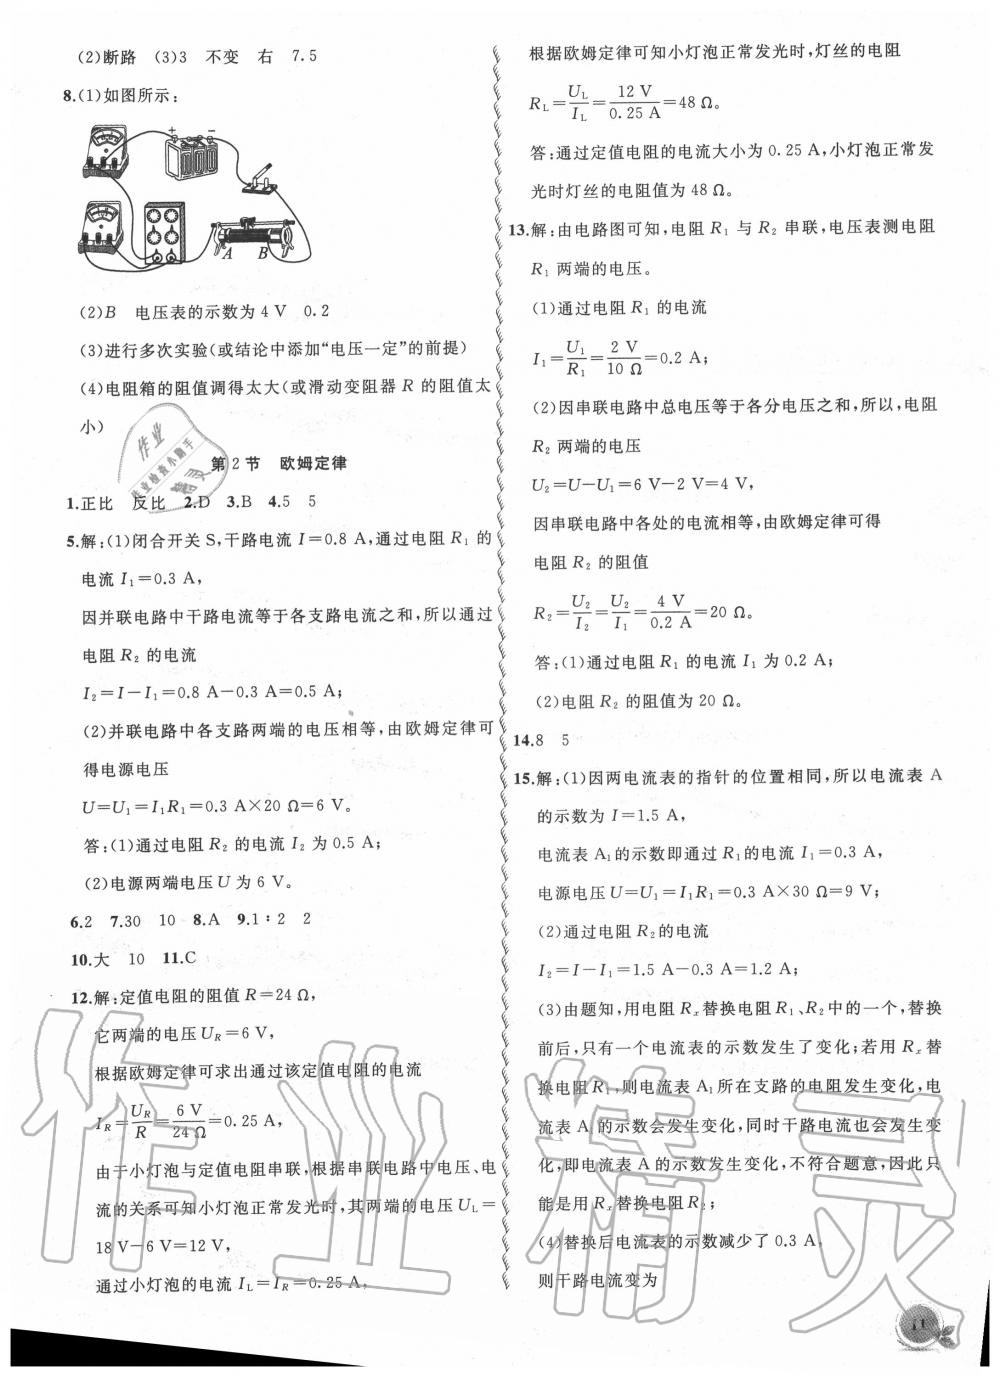 (2)断路　(3)3　不变　右　7.5
8.(1)如图所示:
+　−
A　B
(2)B　电压表的示数为 4 V　0.2
(3)进行多次实验(或结论中添加“电压一定”的前提)
(4)电阻箱的阻值调得太大(或滑动变阻器 R 的阻值太
小)
第 2 节　欧姆定律
1.正比　反比　2.D　3.B　4.5　5
5.解:(1)闭合开关 S,干路电流 I=0.8 A,通过电阻 R₁ 的
电流 I₁=0.3 A,
因并联电路中干路电流等于各支路电流之和,所以通过
电阻 R₂ 的电流
I₂=I−I₁=0.8 A−0.3 A=0.5 A;
(2)并联电路中各支路两端的电压相等,由欧姆定律可
得电源电压
U=U₁=I₁R₁=0.3 A×20 Ω=6 V。
答:(1)通过电阻 R₂ 的电流 I₂ 为 0.5 A;
(2)电源两端电压 U 为 6 V。
6.2　7.30　10　8.A　9.1∶2　2
10.大　10　11.C
12.解:定值电阻的阻值 R=24 Ω,
它两端的电压 U_R=6 V,
根据欧姆定律可求出通过该定值电阻的电流
I_R=U_R/R=6 V/24 Ω=0.25 A,
由于小灯泡与定值电阻串联,根据串联电路中电压、电
流的关系可知小灯泡正常发光时,其两端的电压 U_L=
18 V−6 V=12 V,
通过小灯泡的电流 I_L=I_R=0.25 A,
根据欧姆定律可知小灯泡正常发光时,灯丝的电阻
R_L=U_L/I_L=12 V/0.25 A=48 Ω。
答:通过定值电阻的电流大小为 0.25 A,小灯泡正常发
光时灯丝的电阻值为 48 Ω。
13.解:由电路图可知,电阻 R₁ 与 R₂ 串联,电压表测电阻
R₁ 两端的电压。
(1)通过电阻 R₁ 的电流
I₁=U₁/R₁=2 V/10 Ω=0.2 A;
(2)因串联电路中总电压等于各分电压之和,所以,电阻
R₂ 两端的电压
U₂=U−U₁=6 V−2 V=4 V,
因串联电路中各处的电流相等,由欧姆定律可得
电阻 R₂ 的阻值
R₂=U₂/I₂=U₂/I₁=4 V/0.2 A=20 Ω。
答:(1)通过电阻 R₁ 的电流 I₁ 为 0.2 A;
(2)电阻 R₂ 的阻值为 20 Ω。
14.8　5
15.解:(1)因两电流表的指针的位置相同,所以电流表 A
的示数为 I=1.5 A,
电流表 A₁的示数即通过 R₁的电流 I₁=0.3 A,
电源电压 U=U₁=I₁R₁=0.3 A×30 Ω=9 V;
(2)通过电阻 R₂的电流
I₂=I−I₁=1.5 A−0.3 A=1.2 A;
(3)由题知,用电阻 Rₓ替换电阻 R₁、R₂中的一个,替换
前后,只有一个电流表的示数发生了变化;若用 Rₓ替
换电阻 R₁,则电流表 A₁所在支路的电阻发生变化,电
流表 A₁的示数会发生变化,同时干路电流也会发生变
化,即电流表 A 的示数发生变化,不符合题意,因此只
能是用 Rₓ替换电阻 R₂;
(4)替换后电流表的示数减少了 0.3 A,
则干路电流变为
11
作业
作业检查小助手
精灵
作业精灵